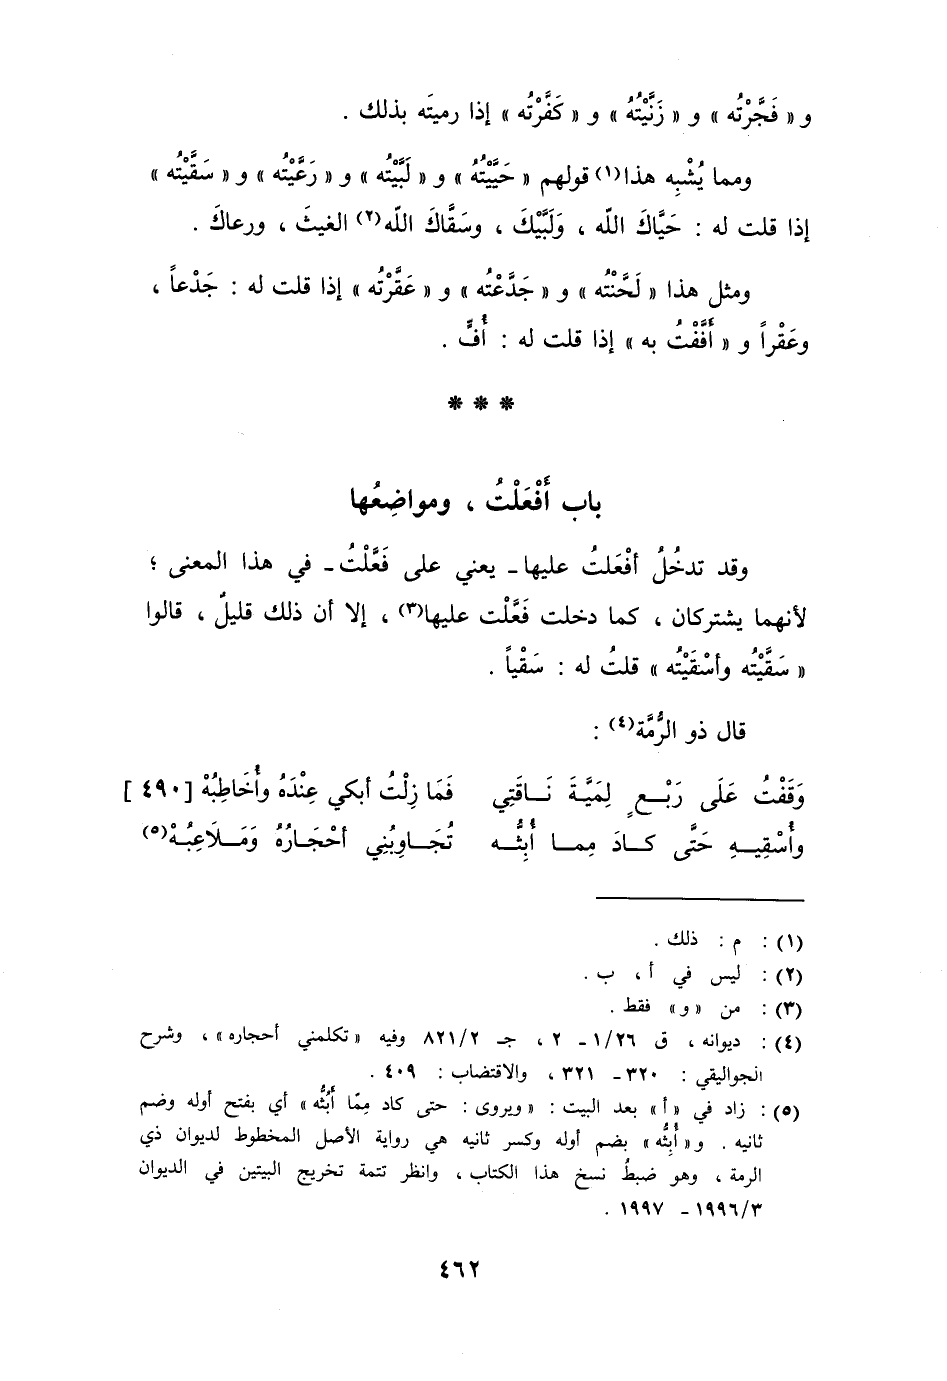 و « فَجَّرْتُه » و « زَنَّيْتُهُ » و « كَفَّرْتُه » إذا رميتَه بذلك .
ومما يُشْبِه هذا(١) قولهم « حَيَّيْتُهُ » و « لَبَّيْتُه » و « رَعَّيْتُه » و « سَقَّيْتُه »
إذا قلت له : حَيَّاكَ اللّه ، وَلَبَّيْكَ ، وسَقَّاكَ اللّه(٢) الغيثَ ، ورعاكَ .
ومثل هذا « لَحَّنْتُه » و « جَدَّعْتُه » و « عَقَّرْتُه » إذا قلت له : جَدْعاً ،
وعَقْراً و « أَفَّفْتُ به » إذا قلت له : أُفٍّ .
* * *
باب أَفْعَلْتُ ، ومواضِعُها
وقد تدخُلُ أفْعَلتُ عليها ـ يعني على فَعَّلْتُ ـ في هذا المعنى ؛
لأنهما يشتركان ، كما دخلت فَعَّلْت عليها(٣) ، إلا أن ذلك قليلٌ ، قالوا
« سَقَّيْتُه وأسْقَيْتُه » قلتُ له : سَقْياً .
قال ذو الرُّمَّة(٤) :
وَقَفْتُ عَلَى رَبْـعٍ لِمَيَّةَ نَـاقَتِي فَمَا زِلْتُ أبكي عِنْدَهُ وأُخَاطِبُهْ [ ٤٩٠ ]
وأُسْقِيـهِ حَتَّى كـادَ مِمـا أُبِثُّـه تُجَـاوِبُنِي أحْجَارُهُ وَمَـلَاعِبُـهْ(٥)
(١) : م : ذلك .
(٢) : ليس في أ ، ب .
(٣) : من « و » فقط .
(٤) : ديوانه ، ق ١/٢٦ ـ ٢ ، جـ ٨٢١/٢ وفيه « تكلمني أحجاره » ، وشرح
الجواليقي : ٣٢٠ ـ ٣٢١ ، والاقتضاب : ٤٠٩ .
(٥) : زاد في « أ » بعد البيت : « ويروى : حتى كاد مِمّا أَبُثُّه » أي بفتح أوله وضم
ثانيه . و « أُبِثُّه » بضم أوله وكسر ثانيه هي رواية الأصل المخطوط لديوان ذي
الرمة ، وهو ضبطُ نسخ هذا الكتاب ، وانظر تتمة تخريج البيتين في الديوان
١٩٩٦/٣ ـ ١٩٩٧ .
٤٦٢